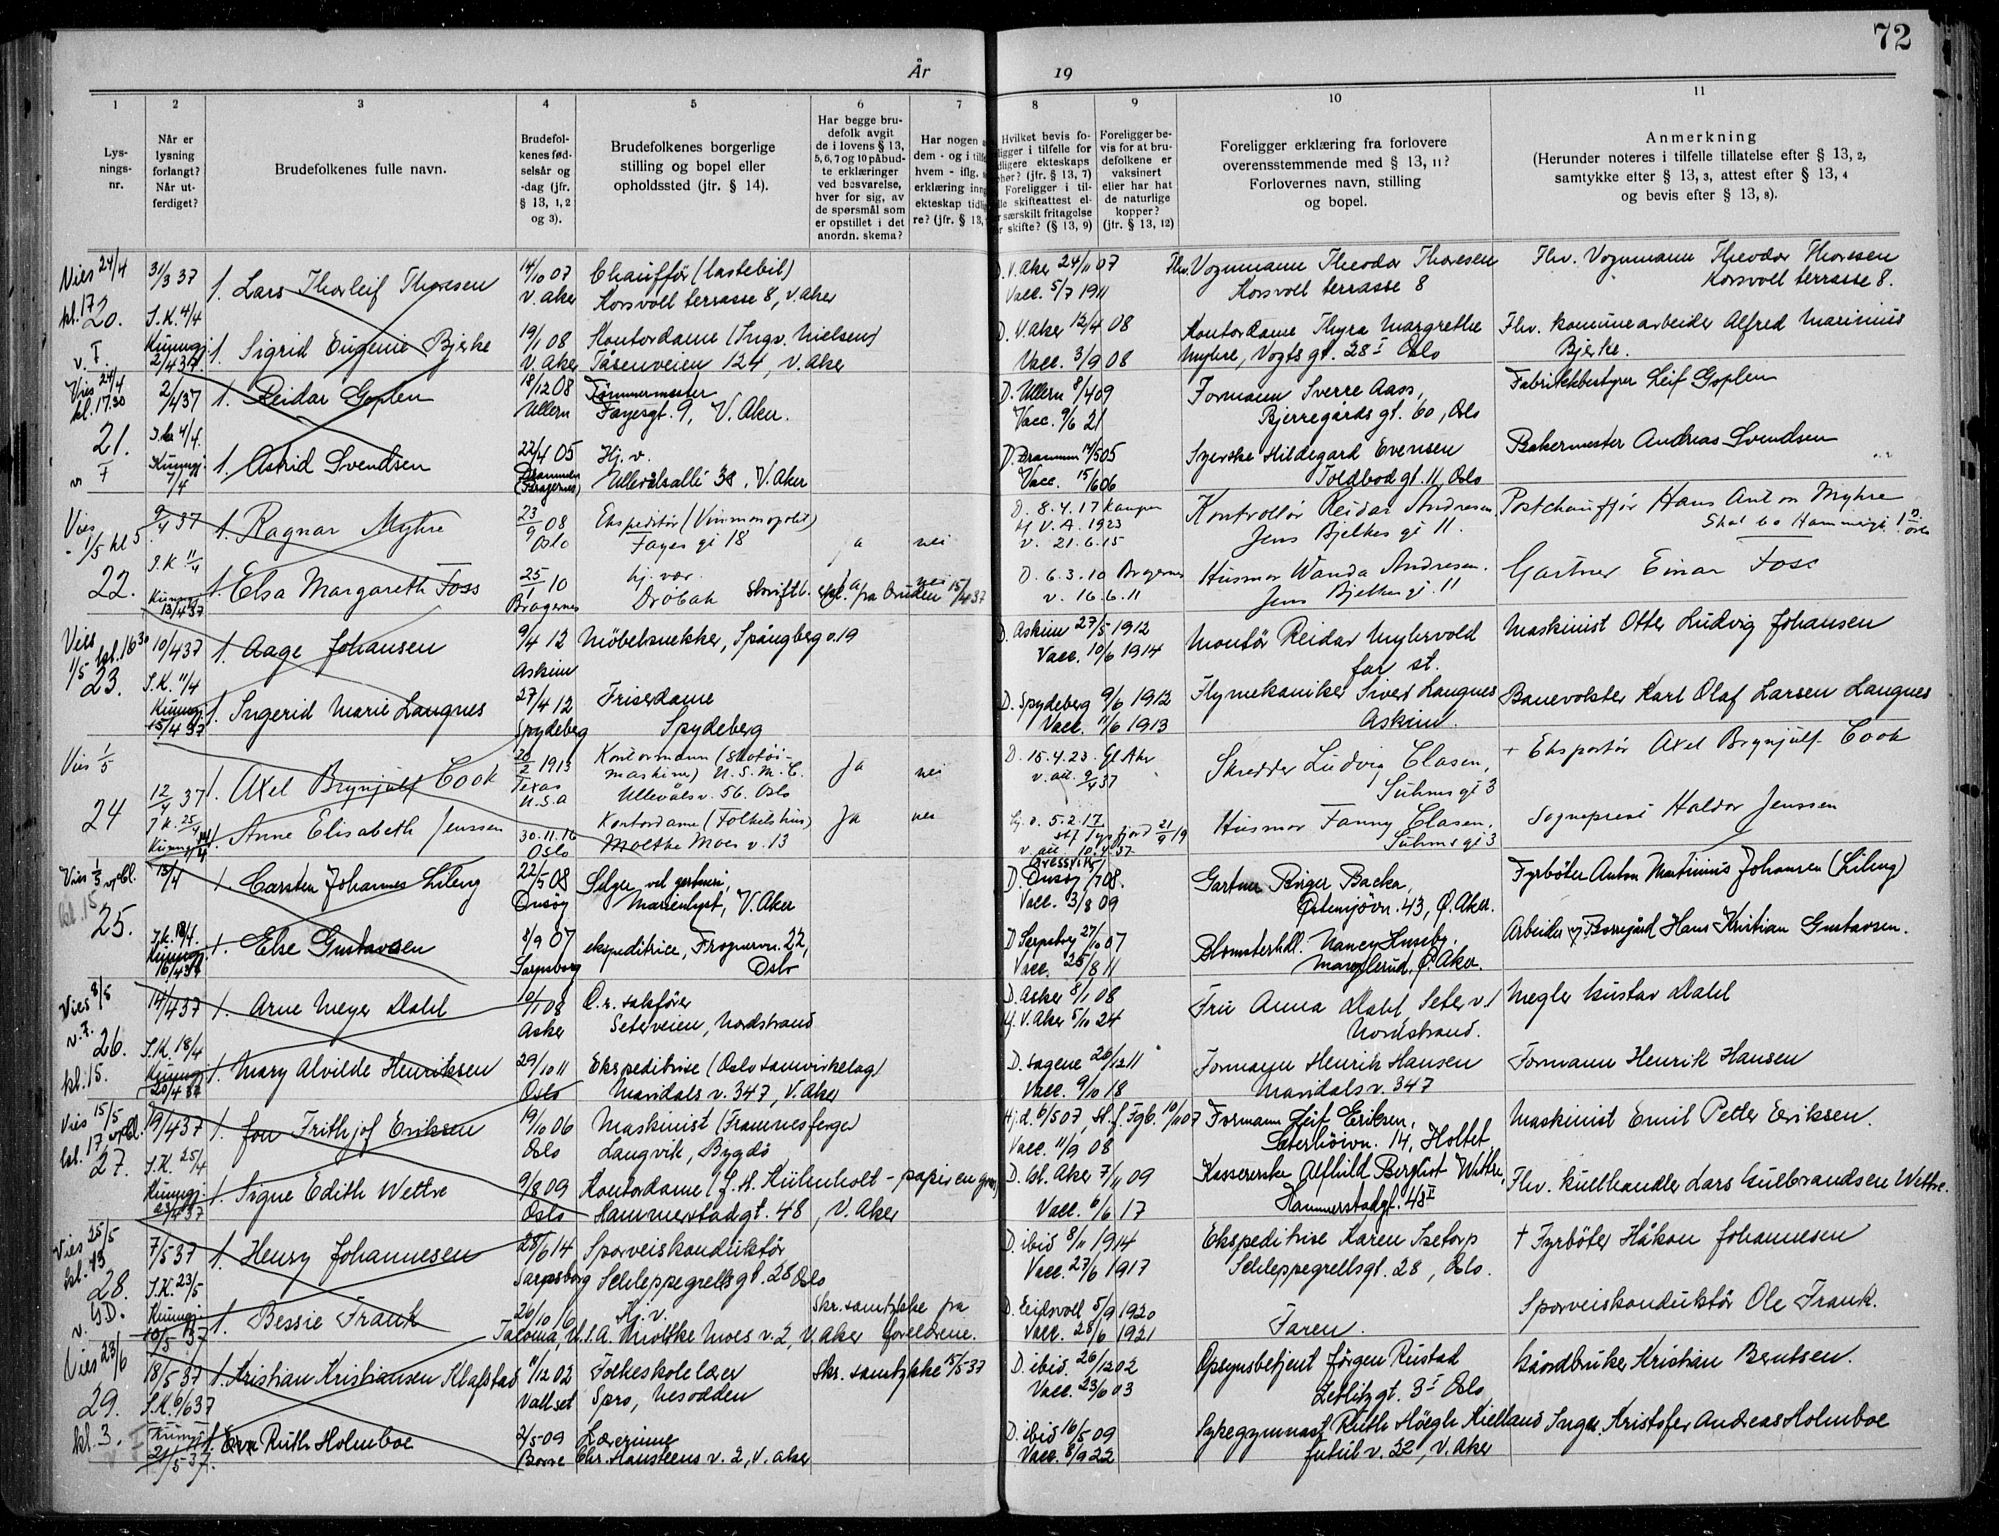 72
År 19
1 2 3 4 5 6 7 8 9 10 11
Lys-
nings-
nr.
Når er
lysning
forlangt?
Når ut-
ferdiget?
Brudefolkenes fulle navn.
Brudefol-
kenes fød-
selsår og
-dag (jfr.
§ 13, 1, 2
og 3).
Brudefolkenes borgerlige
stilling og bopel eller
opholdssted (jfr. § 14).
Har begge bru-
defolk avgit
de i lovens § 13,
5, 6, 7 og 10 påbud-
te erklæringer
ved besvarelse,
hver for sig, av
de spørsmål som
er opstillet i det
anordn. skema?
Har nogen
dem - og i tilf
hvem - iflg.
erklæring inng
ekteskap tidl
re? (jfr. § 13,
Hvilket bevis fo-
ligger i tilfelle for
dligere ekteskaps
hør? (jfr. § 13, 7)
Foreligger i til-
lle skifteattest el-
r særskilt fritagelse
r skifte? (§ 13, 9)
Foreligger be-
vis for at bru-
defolkene er
vaksinert
eller har hat
de naturlige
kopper?
(jfr. § 13, 12)
Foreligger erklæring fra forlovere
overensstemmende med § 13, 11?
Forlovernes navn, stilling
og bopel.
Anmerkning
(Herunder noteres i tilfelle tillatelse efter § 13, 2,
samtykke efter § 13, 3, attest efter § 13, 4
og bevis efter § 13, 8).
Vies 24/4 31/3 37 1. Lars Thorleif Thoresen 14/10 07 Chaufför (lastebil) D. V. Aker 24/11 07 Fhv. Vognmann Theodor Thoresen Fhv. Vognmann Theodor Thoresen
kl. 17 V. Aker Korsvoll terrasse 8, V. Aker Vacc. 5/7 1911 Korsvoll terrasse 8 Korsvoll terrasse 8.
20. S.K. 4/4
v. F. Kunngj. 2/4 37. 1. Sigrid Eugenie Bjerke 19/1 08 Kontordame (Ingv. Nielsen) D. V. Aker 12/4 08 Kontordame Thyra Margrethe Fhv. kommunearbeider Alfred Marinius
V. Aker Tåsenveien 124, V. Aker Vacc. 3/9 08 Myhre, Vogts gt. 28 I Oslo Bjerke.
Vies 24/4 2/4 37 1. Reidar Goplen 18/12 08 Tømmermester D. Ullern 8/4 09 Formann Sverre Aass, Fabrikkbestyrer Leif Goplen
kl. 17.30 Ullern Fayesgt. 9, V. Aker. Vacc. 9/6 21 Bjerregårds gt. 60, Oslo
21. 4/4
v. F Kunngj. 7/4 1. Astrid Svendsen 22/4 05 Hj. v. D. Drammen 14/5 05 Syerske Hildegard Evensen Bakermester Andreas Svendsen
Drammen (Bragernes) Ullevålsallé 38, V. Aker Vacc. 15/6 06 Toldbod gt. 11, Oslo
Vies 1/5 kl 5 9/4 37 1. Ragnar Myhre 23/9 08 Ekspeditör (Vinmonopolet) D. 8.4.17 Kampen Kontrollör Reidar Andresen Postchaufför Hans Anton Myhre
Oslo Fayes gt 18 ja nei V. A. 1923 Jens Bjelkes gt 11.
v. 21.6.15
22. S.K. 11/4
Kunngj. 13/4 37 1. Elsa Margareth Foss 25/1 10 hj. vær. ja nei D. 6.3.10 Bragernes Husmor Wanda Andresen. Gartner Einar Foss
Bragernes Dröbak v. 16.6.11 Jens Bjelkes gt. 11
Vies 1/5 kl. 16 30 10/4 37 1. Aage Johansen 9/4 12 Möbelsnekker, Spångberg v. 19 D. Askim 27/5 1912 Montör Reidar Myhrvold Maskinist Otter Ludvig Johansen
Askim Vacc. 10/6 1914
23. S.K. 11/4
Kunngj. 15/4 37 1. Ingerid Marie Langnes 27/4 12 Frisördame D. Spydeberg 9/6 1912 Flymekaniker Sivert Langnes Banevokter Karl Olaf Larsen Langnes
Spydeberg Spydeberg Vacc. 11/6 1913 Askim.
Vies 1/5 12/4 37 1. Axel Brynjulf Cook 28/2 1913 Kontormann (skotöi- Ja nei D. 15.4.23. Gl Aker Skredder Ludvig Clasen, + Eksportör Axel Brynjulf Cook
Texas U.S.A maskin) U.S.M.C. v. att. 9/4 37 Suhms gt 3
Ullevåls v. 56. Oslo
24 25/4
Kunngj. 14/4 1. Anne Elisabeth Jenssen 30.11.16 Kontordame (Folkets hus) Ja nei D. 5.2.17 Husmor Fanny Clasen, Sogneprest Haldor Jenssen
Oslo Moltke Moes v. 13 Tysfjord 21/9 19 Suhms gt 3
v. att. 10.4.37
Vies 1/5 kl. 15 13/4 1. Carsten Johannes Lileng 22/5 08 Selger ved gartneri, D. Onsöy 08. Gartner Birger Backer, Fyrböter Anton Martinius Johansen (Lileng)
Onsöy Marienlyst, V. Aker Vacc. 13/8 09 Östensjövn. 43, Ö. Aker.
25.
Kunngj. 16/4 37 1. Else Gustavsen 8/9 07 ekspeditrice, Frognervn. 22, D. Sarpsborg 27/10 07 Blomsterhdl. Nancy Huseby. Arbeider v/Borregård Hans Kristian Gustavsen.
Sarpsborg Oslo Vacc. 25/8 11 Manglerud, Ö. Aker.
Vies 8/5 14/4 37 1. Arne Meyer Dahl 10/1 08 O.r. sakförer D. Asker 8/1 08 Fru Anna Dahl Seter v. 1 Megler Gustav Dahl
v. F. Asker Seterveien, Nordstrand V. Aker 5/10 24 Nordstrand.
26. S.K. 18/4
kl. 15. Kunngj. 20/4 37 1. Mary Alvilde Henriksen 29/10 11 Ekspeditrise (Oslo samvirkelag) D. Sagene 26/12 11 Formann Henrik Hansen Formann Henrik Hansen
Oslo Maridals v. 347, V. Aker Vacc. 9/10 18 Maridals v. 347
Vies 15/5 19/4 37 1. Jon Frithjof Eriksen 19/10 06 Maskinist (Framnesferger) Hj. d. 6/5 07, St. f. Fgb. 10/11 07 Formann Leif Eriksen, Maskinist Emil Petter Eriksen.
kl. 17 Oslo Langvik, Bygdö Vacc. 11/9 08 Sæterhöivn. 14, Holtet
27. S.K. 25/4
Kunngj. 1. Signe Edith Wettre 9/8 09 Kontordame (J. H. Kühnholt - papir en gros) D. Gl. Aker 7/11 09 Kassererske Alfhild Berglist Wettre, Fhv. kullhandler Lars Gulbrandsen Wettre.
Oslo Hammerstadgt. 48, V. Aker Vacc. 6/6 17 Hammerstadgt. 48 II
Vies 25/5 7/5 37 1. Henry Johannesen 28/6 14 Sporveiskonduktör D. ibid 8/11 1914 Ekspeditrise Karen Isetorp + Fyrböter Håkon Johannesen
kl. 13 Sarpsborg Schleppegrellsgt. 28 Oslo Vacc. 27/6 1917 Schleppegrellsgt. 28, Oslo.
28. S.K. 23/5
v. G.D. Kunngj. 10/5 37 1. Bessie Frank 26/10 16 Hj. v. Skr. samtykke fra D. Eidsvoll 5/9 1920 Faren. Sporveiskonduktör Ole Frank.
Tacoma, U.S.A. Moltke Moes v. 2, V. Aker foreldrene. Vacc. 28/6 1921
Vies 23/6 18/5 37 1. Kristian Kristiansen Klafstad 11/12 02 Folkeskolelærer Skr. samtykke 15/5 37 D. ibid. 26/12 02 Opsynsbetjent Jörgen Rustad Gårdbruker Kristian Berntsen.
Vallset Spro, Nesodden Vacc. 23/6 03 3 I Oslo
29. S.K. 6/6 37
kl. 3. Kunngj. 21/5 37. 1. Eva Ruth Holmboe 2/5 09 Lærerinne D. ibid 16/5 09 Sykegymnast Ruth Höegh Kielland Ingen. Kristofer Andreas Holmboe
Borre Chr. Hansteens v. 2, V. Aker Vacc. 8/9 22 Jubil v. 32, V. Aker